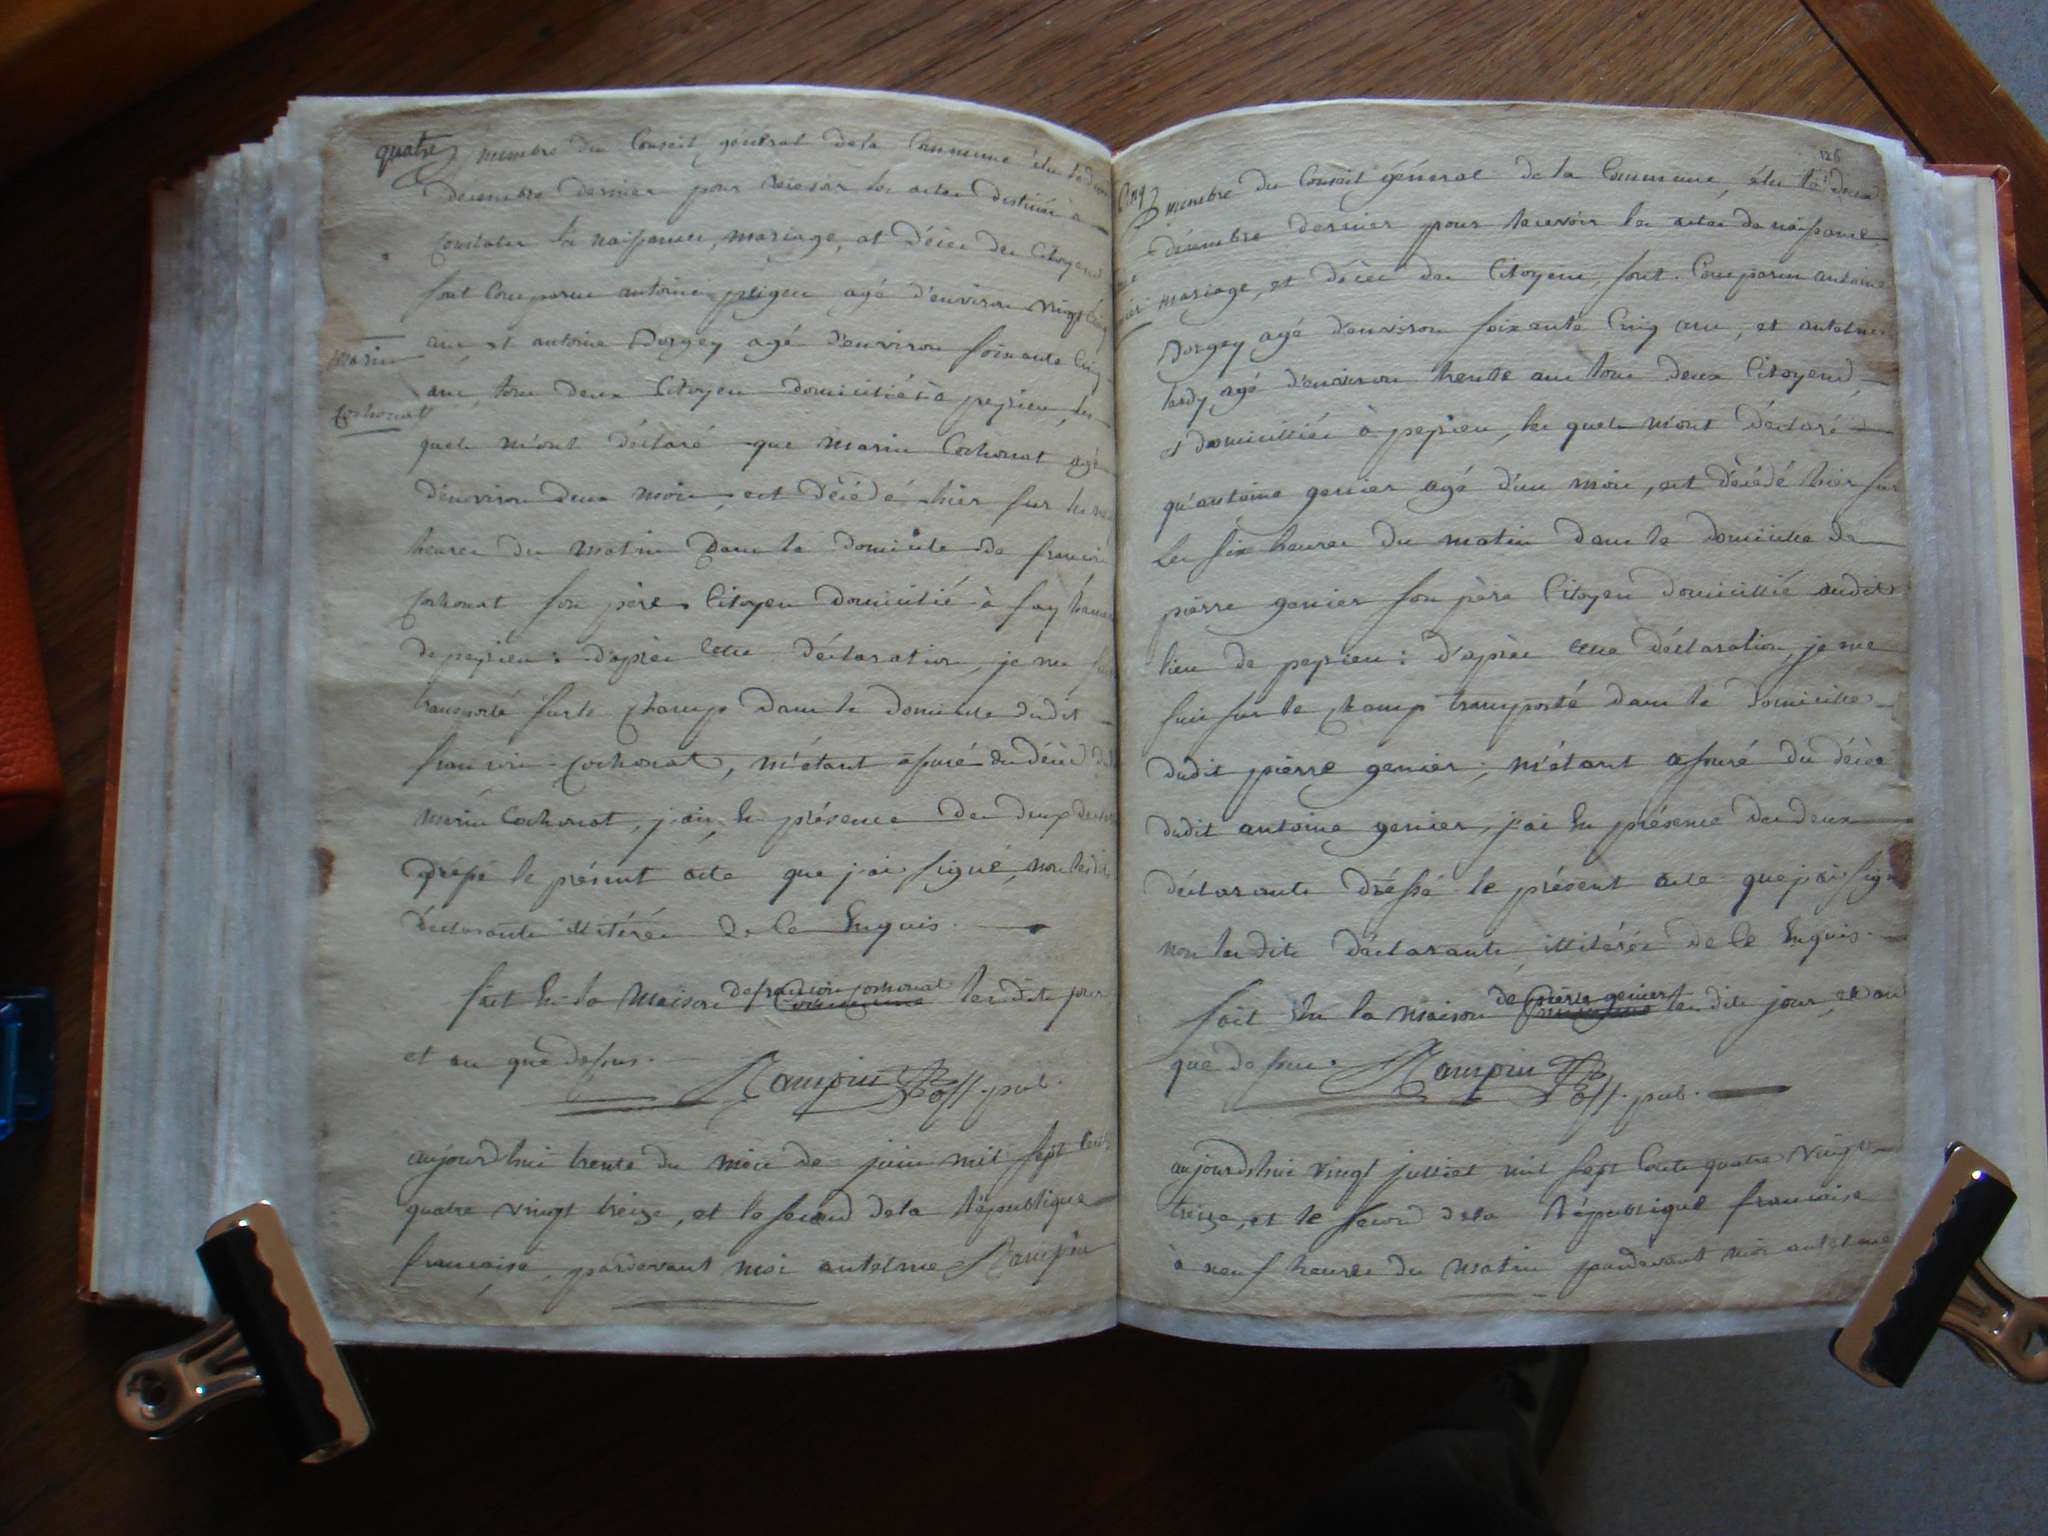 quatre
membre du Conseil général de la Commune élu le deux
décembre dernier pour recevoir les actes destinés à
constater les naissances, mariage, et décès des Citoyens
sont comparus antoine agé d'environ vingt cinq
marin
ans et antoine Dorgey agé d'environ soixante cinq
ans, tous deux Citoyens domiciliés à peyrieu, les
Cochonat
quels m'ont déclaré que marin Cochonat agé
d'environ deux mois, est décédé hier sur les
heures du matin dans le domicile de francois
Cochonat son père Citoyen domicilié à fay hameau
de peyrieu : d'après cette déclaration, je me suis
transporté sur le champ dans le domicile dudit
francois Cochonat, m'étant assuré du décès dudit
marin Cochonat, j'ai en présence des deux
dréssé le présent acte que j'ai signé, non lesdits
déclarants illitérés de ce Enquis.
de francois cochonat
fait En la maison Commune les dits jour
et an que dessus.
Rampin off. pub.
aujourdhui trente du mois de juin mil sept cents
quatre vingt treize, et le second de la République
francaise, pardevant moi antelme Rampin
126
Cinq
membre du Conseil général de la Commune, élu le deux
décembre dernier pour recevoir les actes de naissance
mariage, et décès des Citoyens, sont Comparus antoine
Dorgey agé d'environ soixante Cinq ans, et antelme
tardy agé d'environ trente ans tous deux Citoyens
et domiciliés à peyrieu, les quels m'ont déclaré
qu'antoine genier agé d'un mois, est décédé hier sur
les six heures du matin dans le domicile de
pièrre genier son père Citoyen domicillié audit
lieu de peyrieu : d'après cette déclaration, je me
suis sur le champ transporté dans le domicile
dudit pièrre genier ; m'étant assuré du décès
dudit antoine genier, j'ai En présence des deux
déclarants dréssé le présent acte que j'ai signé
non les dits déclarants, illitérés de ce Enquis.
de pièrre genier
fait En la maison Commune les dits jour, et an
que dessus.
Rampin off. pub.
aujourdhui vingt juillet mil sept Cents quatre vingt
treize, et le second dela République francaise
à neuf heures du matin pardevant moi antelme